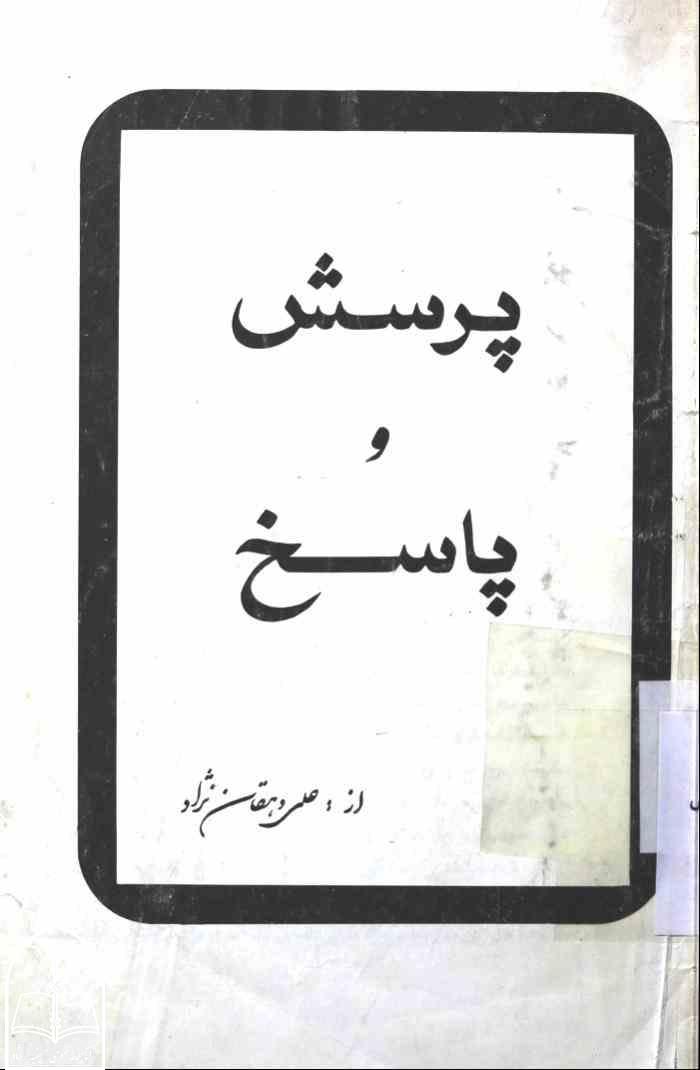 پرسش
و
پاسخ
از : علی دهقان نژاد